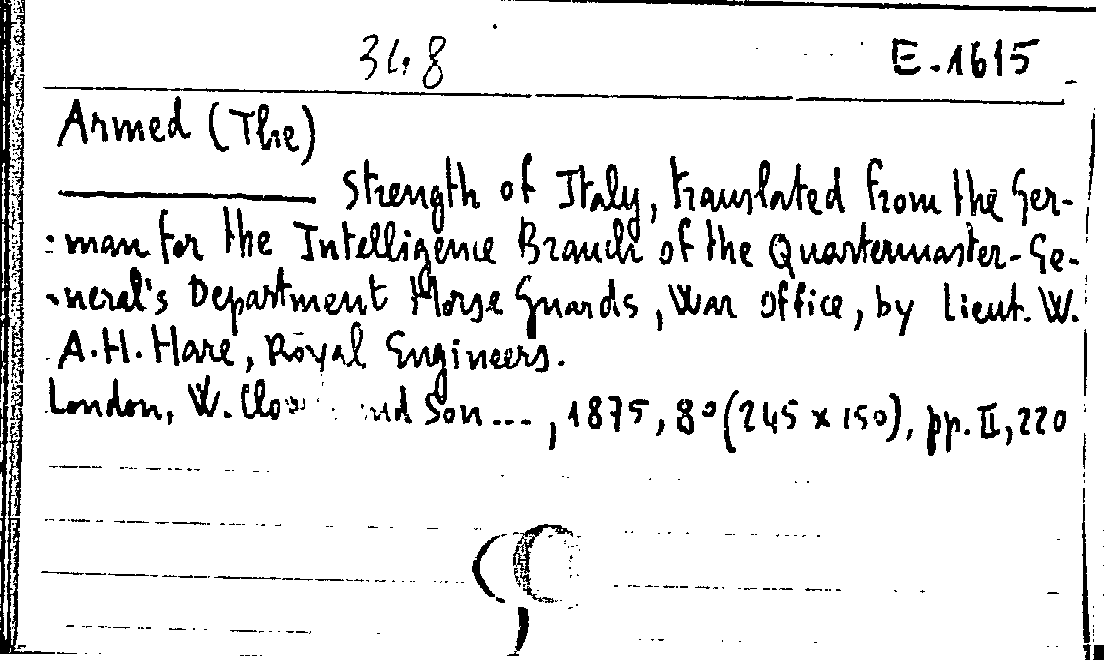 348 E.1615
Armed (The)
strength of Italy, translated from the Ger-
man for the Intelligence Branch of the Quartermaster-Ge-
neral's Department Horse Guards, War Office, by Lieut. W.
A.H. Hare, Royal Engineers.
London, W. and Son..., 1875, 8° (245 x 150), pp. II, 220